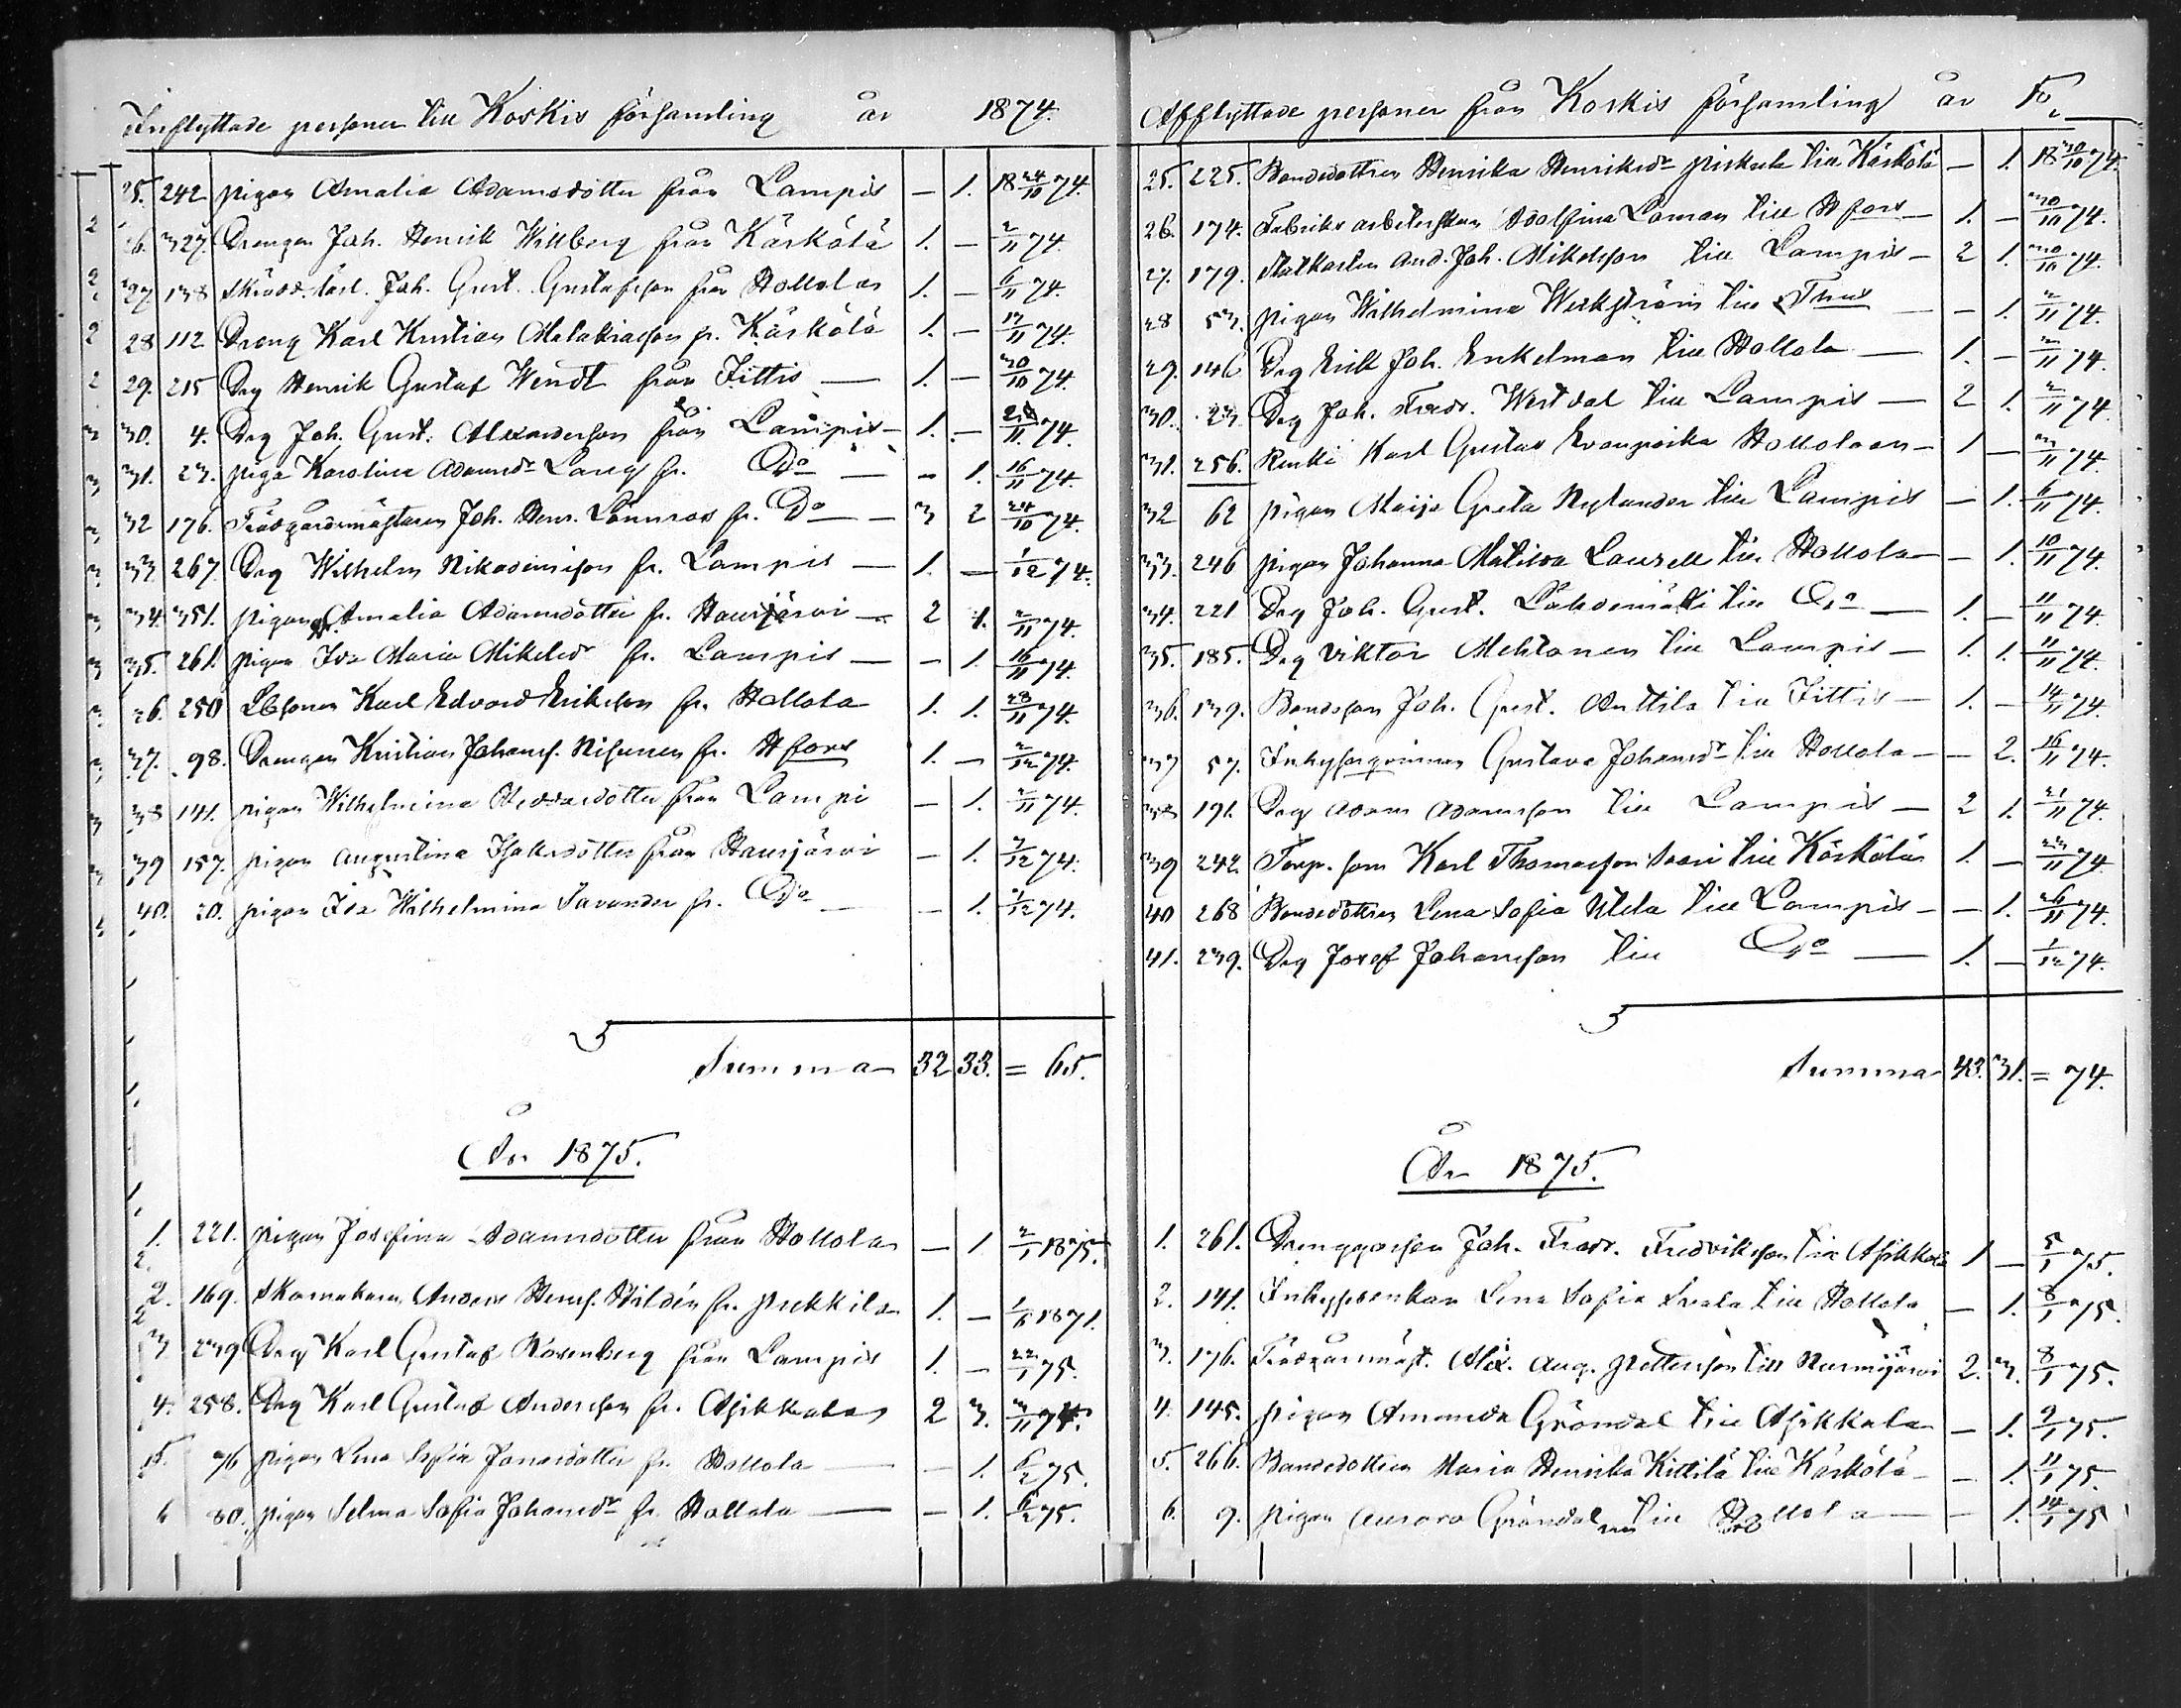 Inflyttade personer till Koskis församling år 1874.
25. 242 pigan Amalia Adamsdotter från Lampis — 1. 18 24/10 74.
26. 327. Drengen Joh. Henrik Willberg från Kärkölä 1. — 2/11 74.
27. 138 Skrädd. lärl. Joh. Gust. Gustafsson från Hollola 1. — 6/11 74.
28 112 Dreng Karl Kristian Malakiasson fr. Kärkölä 1. — 17/11 74.
29. 215 Drg Henrik Gustaf Wendt från Jittis — 1. — 30/10 74.
30. 4. Drg Joh. Gust. Alexanderson från Lampis — 1. — 74.
31. 23. piga Karolina Adamsdr Lang fr. Do — — 1. 16/11 74.
32 176. Trädgårdsmästaren Joh. Henr. Lönnros fr. Do — 3 2 24/10 74.
33. 267. Drg Wilhelm Nikodemisson fr. Lampis — 1. — 1/12 74.
34. 351. pigan Amalia Adamsdotter fr. Hausjärvi — 2 1. 2/11 74.
35. 261. pigan Ida Maria Mikelsdr fr. Lampis — — 1. 16/11 74.
36. 250 Karl Edvard Erikson fr. Hollola 1. 1. 28/11 74.
37. 98. Drengen Kristian Johansf. Nisunen fr. Hfors 1. — 2/12 74.
38 141. pigan Wilhelmina från Lampi — 1. 2/11 74.
39 157. pigan Augustina Isaksdotter från Hausjärvi — 1. 7/12 74.
40. 20. pigan Ida Wilhelmina Savander fr. Do — — 1. 74.
Summa 32 33. = 65.
År 1875.
1. 221. pigan Josefina Adamsdotter från Hollola — 1 2/1 1875.
2. 169. Skomakaren Anders Henrsf. Waldén fr. Pukkila 1. — 1871.
3 239 Drg Karl Gustaf Rosenberg från Lampis 1. — 22/1 75.
4. 258. Drg Karl Gustaf Anderson fr. Asikkala 2 3. 3/11 74.
5. 96 pigan Lena Sofia Jonasdotter fr. Hollola — — 1. 6/2 75.
6 80. pigan Selma Sofia Johansdr fr. Hollola — — 1. 6/2 75.
Afflyttade personer från Koskis församling år Do
25. 225. Bondedottren Henrika Henriksdr Piskula till Kärkölä — 1. 18 30/10 74.
26. 174. Fabriks arbeterskan Adolfina Loman till Hfors — 1. — 30/10 74.
27. 179. Statkarlen And. Joh. Mikelsson till Lampis — 2 1. 30/10 74.
28 53. pigan Wilhelmina Werkström till Thus — — 1. 2/11 74.
29. 146 Drg Erik Joh. Enkelman till Hollola — 1. — 2/11 74.
30. 23 Drg Joh. Fredr. Westdal till Lampis — 2 1. 2/11 74.
31. 256. Renki Karl Gustav Hollolaan — 1 — 3/11 74.
32 62 pigan Maija Greta Nylander till Lampis — 1. 6/11 74.
33. 246 pigan Johanna Matilda Laurell till Hollola — — 1. 10/11 74.
34. 221 Drg Joh. Gust. Lähdemäki till Do — 1. — 11/11 74.
35. 185. Drg Viktor Mehtonen till Lampis — 1. 1. 11/11 74.
36. 139. Bondeson Joh. Gust. Anttila till Jittis — 1. — 14/11 74.
37 57. Inhysesqvinnan Gustava Johansdr till Hollola — — 2. 16/11 74.
38 191. Drg Adam Adamsson till Lampis — 2 1. 21/11 74.
39 242. Torp. son Karl Thomasson Saari till Kärkölä 1. — 23/11 74
40 268 Bondedottren Lena Sofia Utela till Lampis — — 1. 26/11 74.
41. 239. Drg Josef Johansson till Do — 1. — 1/12 74.
Summa 43. 31. = 74.
År 1875.
1. 261. Drenggossen Joh. Fredr. Fredriksson till Asikkala 1 — 5/1 75.
2. 141. Inhysesenkan Lena Sofia till Hollola — 1. 8/1 75.
3. 176. Trädgårdmäst. Alex. Aug. Pettersson till Nurmijärvi 2. 3. 8/1 75.
4. 145. pigan Amanda Gröndal till Asikkala — 1. 9/1 75.
5. 266. Bondedottren Maria Henrika Kittilä till Kärkölä — — 1. 11/1 75.
6. 9. pigan Aurora Gröndal till Hollola — — 1. 14/1 75